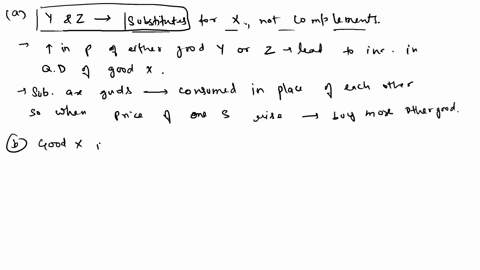 (a) Y & Z → Substitutes for X, not complements.
→ ↑ in P of either good Y or Z → lead to inc. in
Q.D of good X.
→ Sub. are goods → consumed in place of each other
so when price of one S rise → buy more other good.
(b) Good X